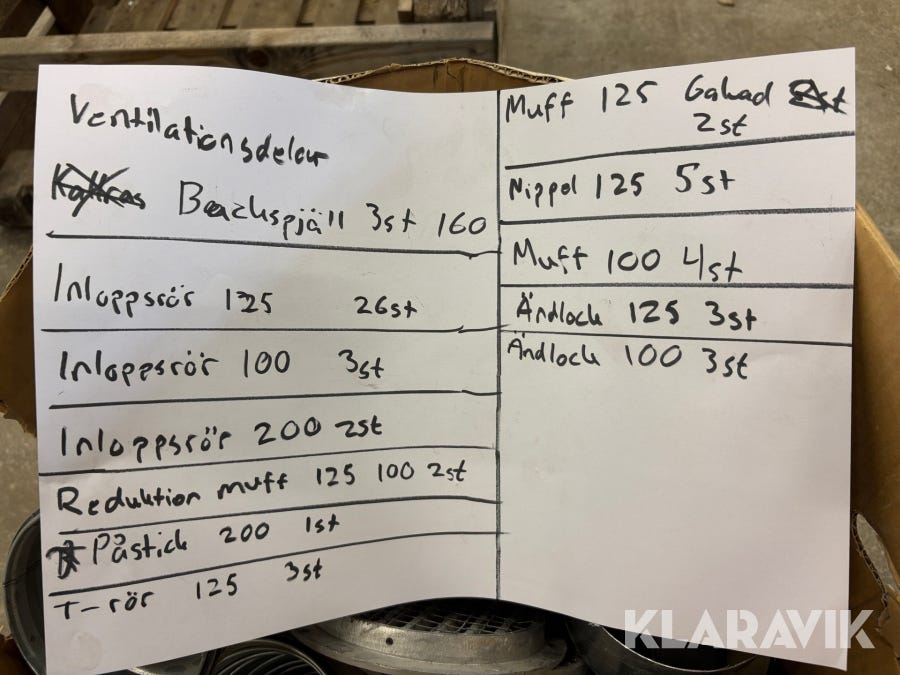 Ventilationsdelar
Backspjäll 3st 160
Inloppsrör 125 26st
Inloppsrör 100 3st
Inloppsrör 200 2st
Reduktion muff 125 100 2st
Påstick 200 1st
T-rör 125 3st
Muff 125 Gahad
2st
Nippel 125 5st
Muff 100 4st
Ändlock 125 3st
Ändlock 100 3st
KLARAVIK